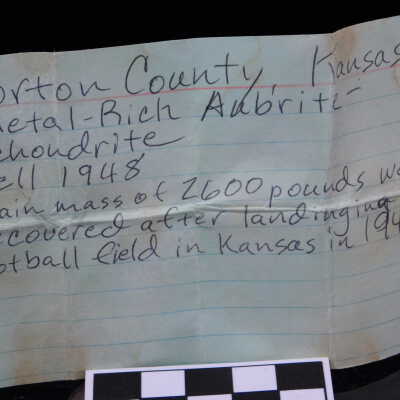 orton County, Kansas
etal-Rich Aubrite
chondrite
ell 1948
ain mass of 2600 pounds w
covered after landinging
otball field in Kansas in 194